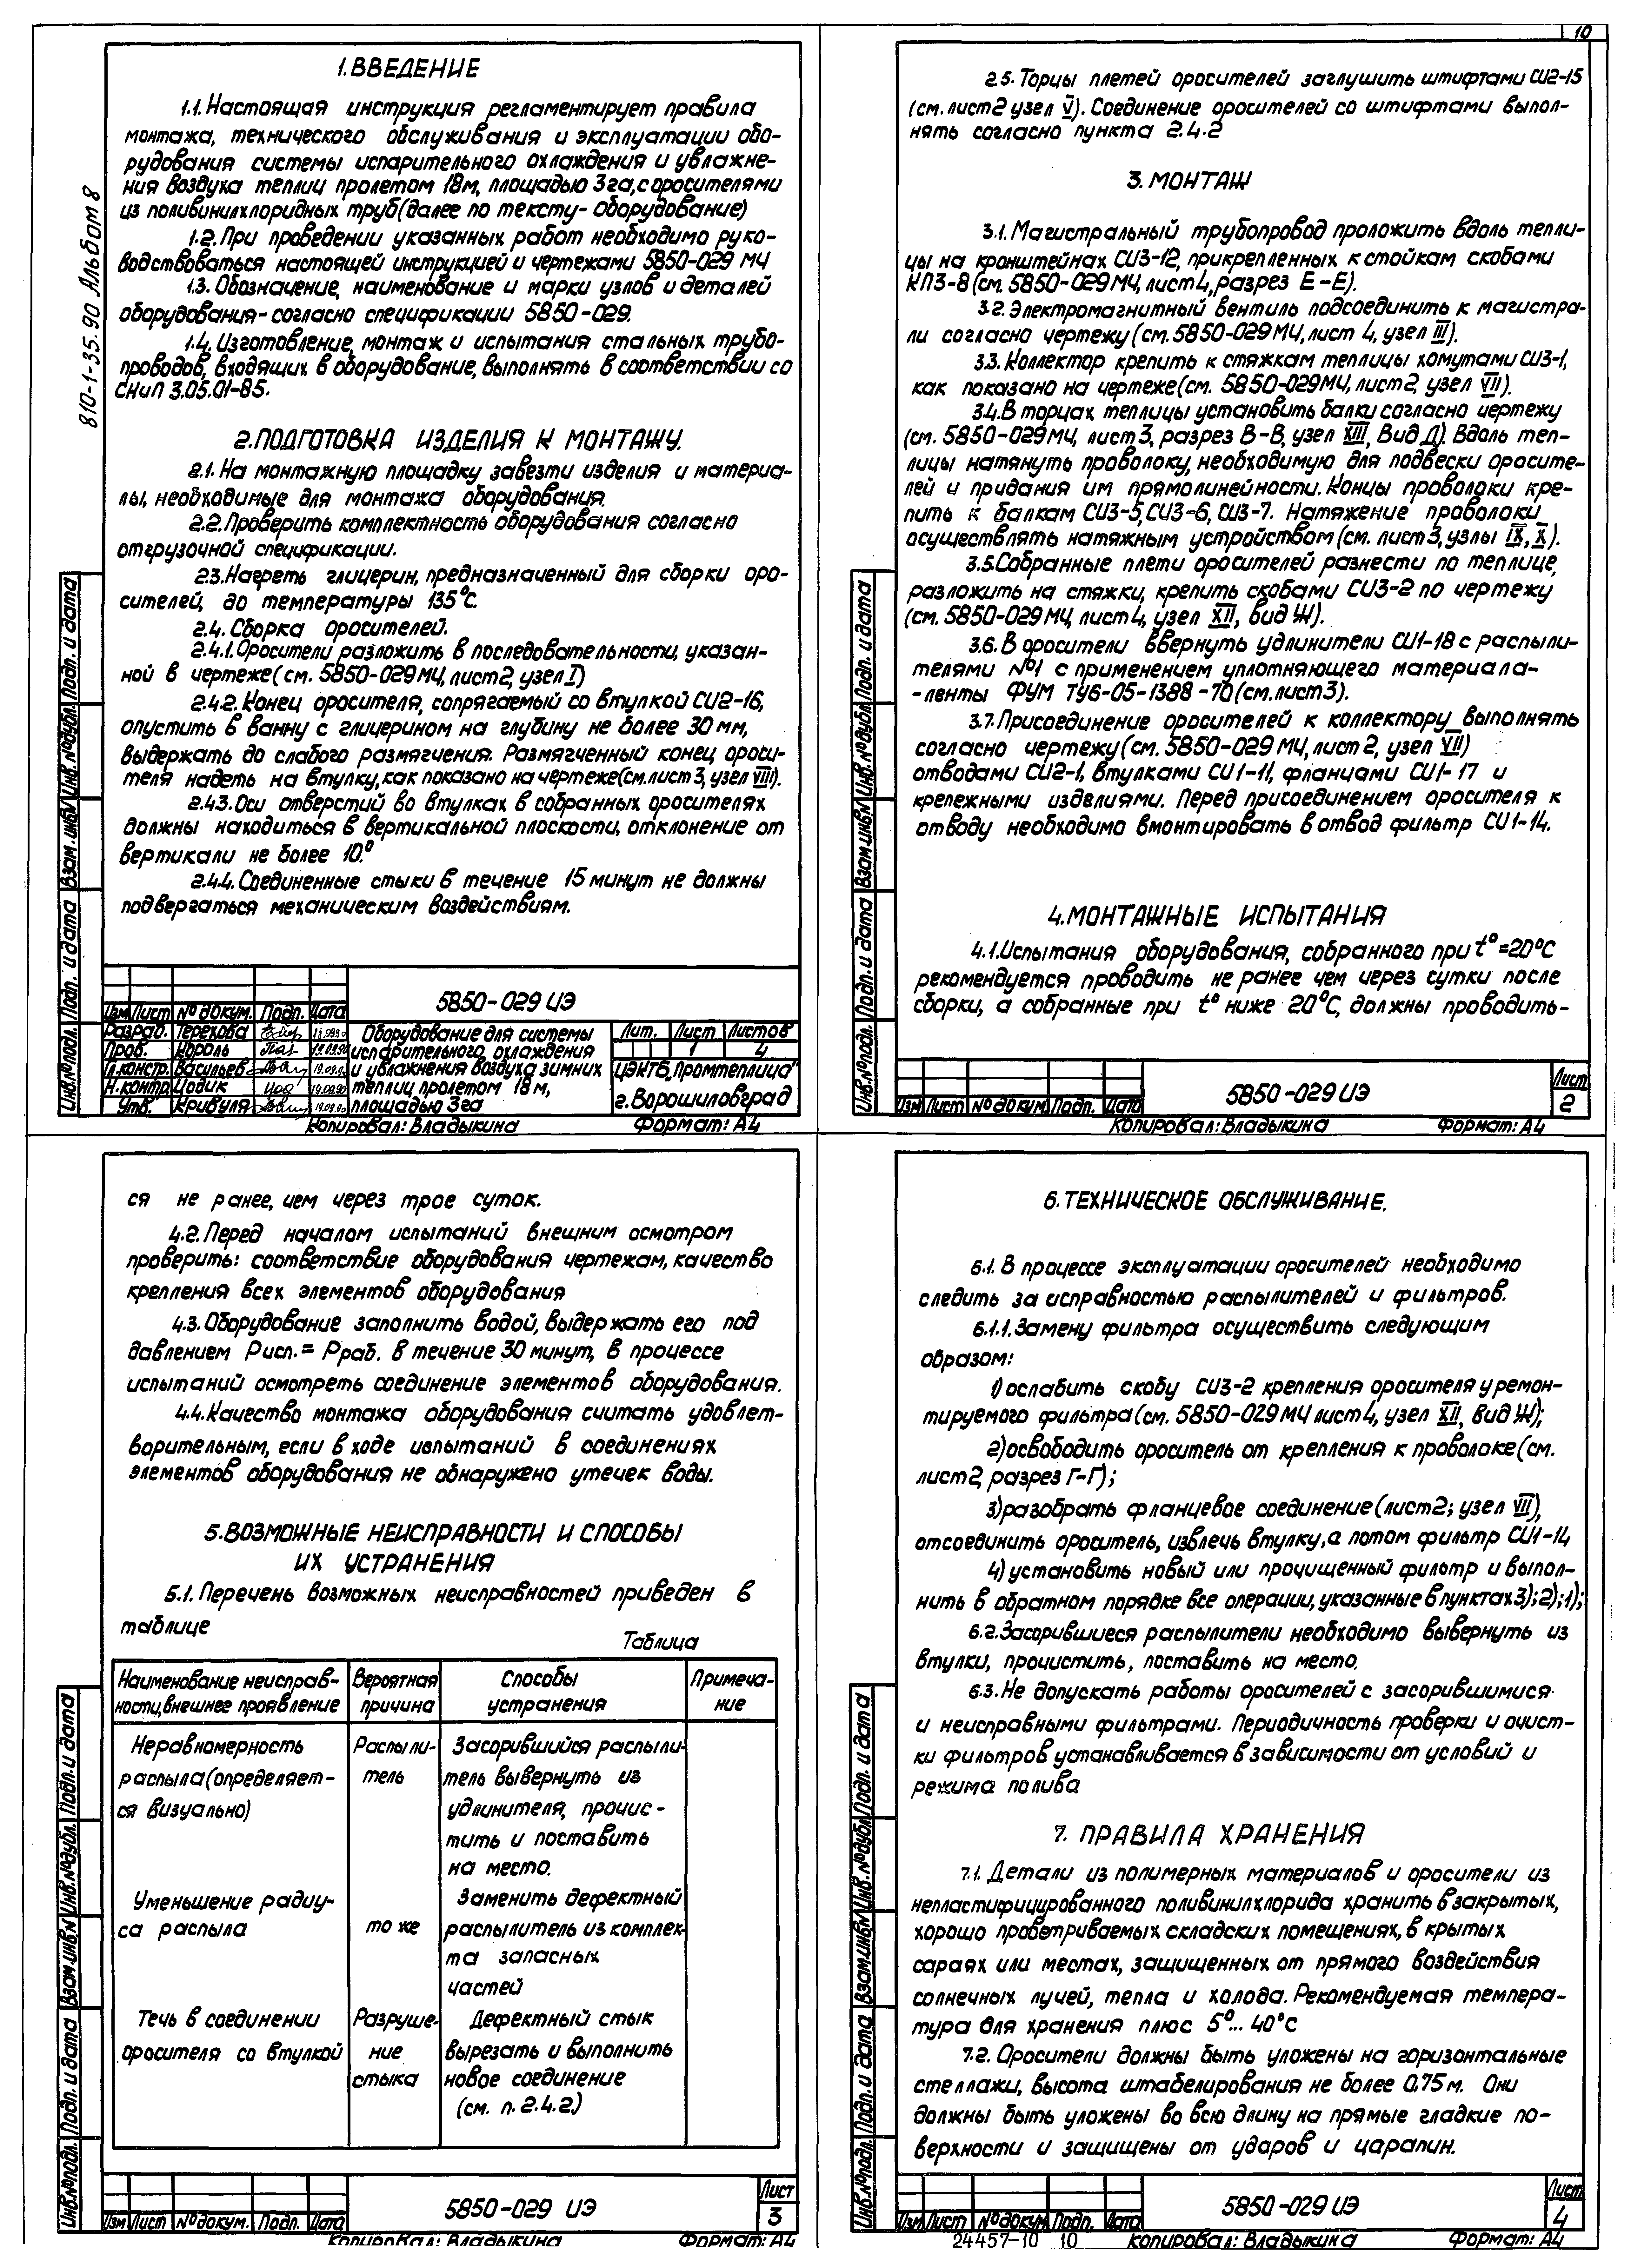 10
810-1-35.90 Альбом 8
1. ВВЕДЕНИЕ
1.1. Настоящая инструкция регламентирует правила
монтажа, технического обслуживания и эксплуатации обо-
рудования системы испарительного охлаждения и увлажне-
ния воздуха теплиц пролетом 18м, площадью 3га, с оросителями
из поливинилхлоридных труб (далее по тексту - оборудование)
1.2. При проведении указанных работ необходимо руко-
водствоваться настоящей инструкцией и чертежами 5850-029 МЧ
1.3. Обозначение, наименование и марки узлов и деталей
оборудования - согласно спецификации 5850-029.
1.4. Изготовление, монтаж и испытания стальных трубо-
проводов, входящих в оборудование, выполнять в соответствии со
СНиП 3.05.01-85.
2. ПОДГОТОВКА ИЗДЕЛИЯ К МОНТАЖУ.
2.1. На монтажную площадку завезти изделия и материа-
лы, необходимые для монтажа оборудования.
2.2. Проверить комплектность оборудования согласно
отгрузочной спецификации.
2.3. Нагреть глицерин, предназначенный для сборки оро-
сителей, до температуры 135°С.
2.4. Сборка оросителей.
2.4.1. Оросители разложить в последовательности, указан-
ной в чертеже (см. 5850-029 МЧ, лист 2, узел I)
2.4.2. Конец оросителя, сопрягаемый со втулкой СИ2-16,
опустить в ванну с глицерином на глубину не более 30 мм,
выдержать до слабого размягчения. Размягченный конец ороси-
теля надеть на втулку, как показано на чертеже (см. лист 3, узел VIII).
2.4.3. Оси отверстий во втулках в собранных оросителях
должны находиться в вертикальной плоскости, отклонение от
вертикали не более 10.°
2.4.4. Соединенные стыки в течение 15 минут не должны
подвергаться механическим воздействиям.
Инв.№подл. Подп. и дата Взам.инв№ Инв.№дубл. Подп. и дата
5850-029 ИЭ
Изм Лист № докум. Подп. Дата
Разраб. Терехова 18.09.90
Пров. Король 19.09.90
Гл.констр. Васильев 19.09.90
Н.контр. Цодик 19.09.90
Утв. Кривуля 19.09.90
Оборудование для системы
испарительного охлаждения
и увлажнения воздуха зимних
теплиц пролетом 18м,
площадью 3га
Лит. Лист Листов
1 4
ЦЭКТБ „Промтеплица"
г. Ворошиловград
Копировал: Владыкина Формат: А4
2.5. Торцы плетей оросителей заглушить штифтами СИ2-15
(см. лист 2 узел V). Соединение оросителей со штифтами выпол-
нять согласно пункта 2.4.2
3. МОНТАЖ
3.1. Магистральный трубопровод проложить вдоль тепли-
цы на кронштейнах СИ3-12, прикрепленных к стойкам скобами
КП3-8 (см. 5850-029 МЧ, лист 4, разрез Е-Е).
3.2. Электромагнитный вентиль подсоединить к магистра-
ли согласно чертежу (см. 5850-029 МЧ, лист 4, узел III).
3.3. Коллектор крепить к стяжкам теплицы хомутами СИ3-1,
как показано на чертеже (см. 5850-029 МЧ, лист 2, узел VII).
3.4. В торцах теплицы установить балки согласно чертежу
(см. 5850-029 МЧ, лист 3, разрез В-В, узел XIII, вид Д). Вдоль теп-
лицы натянуть проволоку, необходимую для подвески оросите-
лей и придания им прямолинейности. Концы проволоки кре-
пить к балкам СИ3-5, СИ3-6, СИ3-7. Натяжение проволоки
осуществлять натяжным устройством (см. лист 3, узлы IX, X).
3.5. Собранные плети оросителей разнести по теплице,
разложить на стяжки, крепить скобами СИ3-2 по чертежу
(см. 5850-029 МЧ, лист 4, узел XII, вид Ж).
3.6. В оросители ввернуть удлинители СИ1-18 с распыли-
телями №1 с применением уплотняющего материала-
-ленты ФУМ ТУ6-05-1388-70 (см. лист 3).
3.7. Присоединение оросителей к коллектору выполнять
согласно чертежу (см. 5850-029 МЧ, лист 2, узел VII)
отводами СИ2-1, втулками СИ1-11, фланцами СИ1-17 и
крепежными изделиями. Перед присоединением оросителя к
отводу необходимо вмонтировать в отвод фильтр СИ1-14.
4. МОНТАЖНЫЕ ИСПЫТАНИЯ
4.1. Испытания оборудования, собранного при t°=20°С
рекомендуется проводить не ранее чем через сутки после
сборки, а собранные при t° ниже 20°С, должны проводить-
Инв.№подл. Подп. и дата Взам.инв№ Инв.№дубл. Подп. и дата
Изм Лист № докум. Подп. Дата
5850-029 ИЭ
Лист
2
Копировал: Владыкина Формат: А4
ся не ранее, чем через трое суток.
4.2. Перед началом испытаний внешним осмотром
проверить: соответствие оборудования чертежам, качество
крепления всех элементов оборудования
4.3. Оборудование заполнить водой, выдержать его под
давлением Рисп. = Рраб. в течение 30 минут, в процессе
испытаний осмотреть соединение элементов оборудования.
4.4. Качество монтажа оборудования считать удовлет-
ворительным, если в ходе испытаний в соединениях
элементов оборудования не обнаружено утечек воды.
5. ВОЗМОЖНЫЕ НЕИСПРАВНОСТИ И СПОСОБЫ
ИХ УСТРАНЕНИЯ
5.1. Перечень возможных неисправностей приведен в
таблице
Таблица
Наименование неисправ- Вероятная Способы Примеча-
ности, внешнее проявление причина устранения ние
Неравномерность Распыли- Засорившийся распыли-
распыла (определяет- тель тель вывернуть из
ся визуально) удлинителя, прочис-
тить и поставить
на место.
Уменьшение радиу- Заменить дефектный
са распыла то же распылитель из комплек-
та запасных
частей
Течь в соединении Разруше- Дефектный стык
оросителя со втулкой ние вырезать и выполнить
стыка новое соединение
(см. п. 2.4.2.)
Инв.№подл. Подп. и дата Взам.инв№ Инв.№дубл. Подп. и дата
Изм Лист № докум. Подп. Дата
5850-029 ИЭ
Лист
3
Копировал: Владыкина Формат: А4
6. ТЕХНИЧЕСКОЕ ОБСЛУЖИВАНИЕ.
6.1. В процессе эксплуатации оросителей необходимо
следить за исправностью распылителей и фильтров.
6.1.1. Замену фильтра осуществить следующим
образом:
1) ослабить скобу СИ3-2 крепления оросителя у ремон-
тируемого фильтра (см. 5850-029 МЧ лист 4, узел XII, вид Ж);
2) освободить ороситель от крепления к проволоке (см.
лист 2, разрез Г-Г);
3) разобрать фланцевое соединение (лист 2; узел VII),
отсоединить ороситель, извлечь втулку, а потом фильтр СИ1-14
4) установить новый или прочищенный фильтр и выпол-
нить в обратном порядке все операции, указанные в пунктах 3); 2); 1);
6.2. Засорившиеся распылители необходимо вывернуть из
втулки, прочистить, поставить на место.
6.3. Не допускать работы оросителей с засорившимися
и неисправными фильтрами. Периодичность проверки и очист-
ки фильтров устанавливается в зависимости от условий и
режима полива
7. ПРАВИЛА ХРАНЕНИЯ
7.1. Детали из полимерных материалов и оросители из
непластифицированного поливинилхлорида хранить в закрытых,
хорошо проветриваемых складских помещениях, в крытых
сараях или местах, защищенных от прямого воздействия
солнечных лучей, тепла и холода. Рекомендуемая темпера-
тура для хранения плюс 5°... 40°С
7.2. Оросители должны быть уложены на горизонтальные
стеллажи, высота штабелирования не более 0,75 м. Они
должны быть уложены во всю длину на прямые гладкие по-
верхности и защищены от ударов и царапин.
Инв.№подл. Подп. и дата Взам.инв№ Инв.№дубл. Подп. и дата
Изм Лист № докум Подп. Дата
5850-029 ИЭ
Лист
4
24457-10 10 Копировал: Владыкина Формат: А4